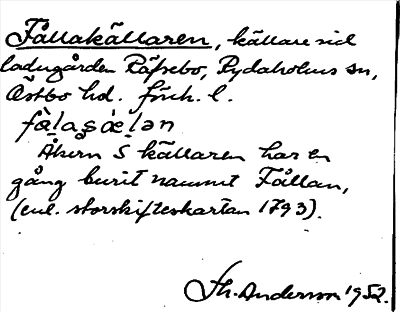 Fållakällaren, källare vid
ladugården Räfsebo, Rydaholms sn,
Östbo hd. Jönk. l.
Åkern S källaren har en
gång burit namnet Fållan,
(enl. storskifteskartan 1793).
Th. Anderson 1952.